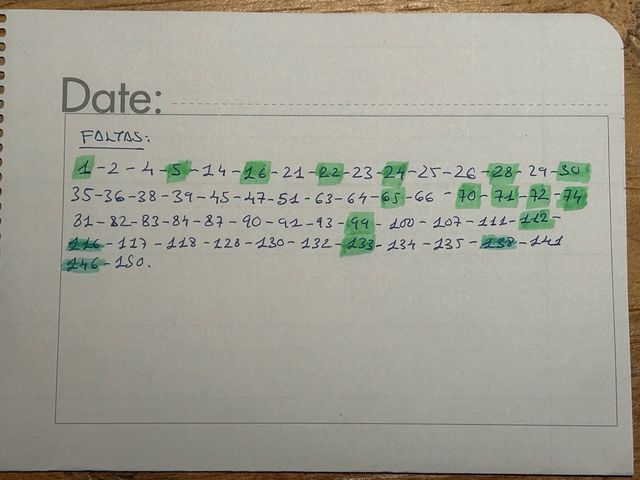 Date:
FALTAS:
1 - 2 - 4 - 5 - 14 - 16 - 21 - 22 - 23 - 24 - 25 - 26 - 28 - 29 - 30
35 - 36 - 38 - 39 - 45 - 47 - 51 - 63 - 64 - 65 - 66 - 70 - 71 - 72 - 74
81 - 82 - 83 - 84 - 87 - 90 - 91 - 93 - 99 - 100 - 107 - 111 - 112 -
116 - 117 - 118 - 128 - 130 - 132 - 133 - 134 - 135 - 138 - 141
146 - 150.